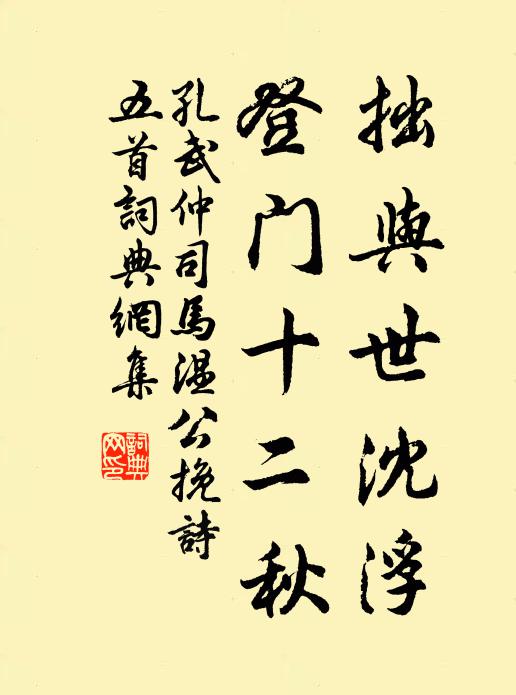 拙與世沈浮
登門十二秋
孔武仲司馬溫公挽詩
五首詞典網集
詞典
网印